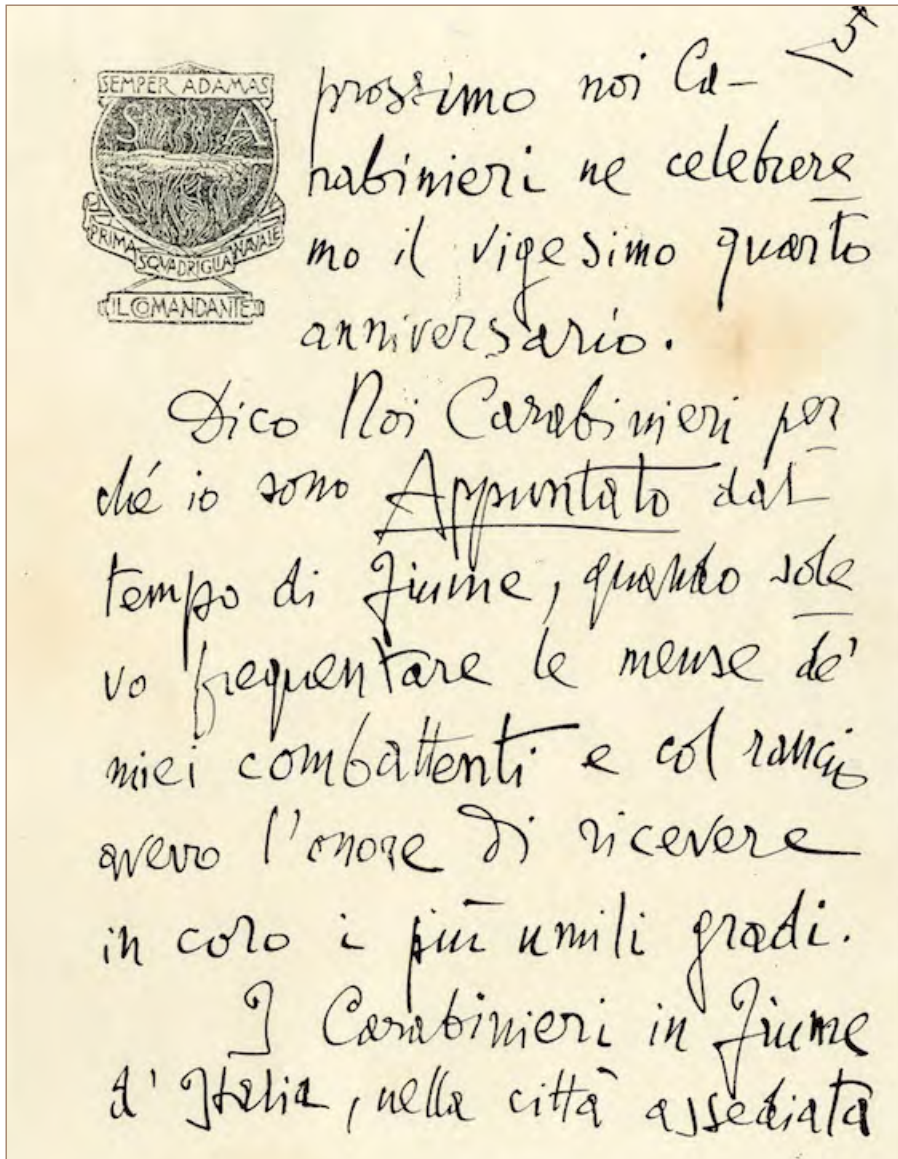 5
SEMPER ADAMAS
S A
PRIMA SQVADRIGLIA NAVALE
IL COMANDANTE
prossimo noi Ca-
rabinieri ne celebrere
mo il vigesimo quarto
anniversario.
Dico Noi Carabinieri per
ché io sono Appuntato dal
tempo di Fiume, quando sole
vo frequentare le mense de'
miei combattenti e col rancio
avevo l'onore di ricevere
in coro i più umili gradi.
I Carabinieri in Fiume
d'Italia, nella città assediata